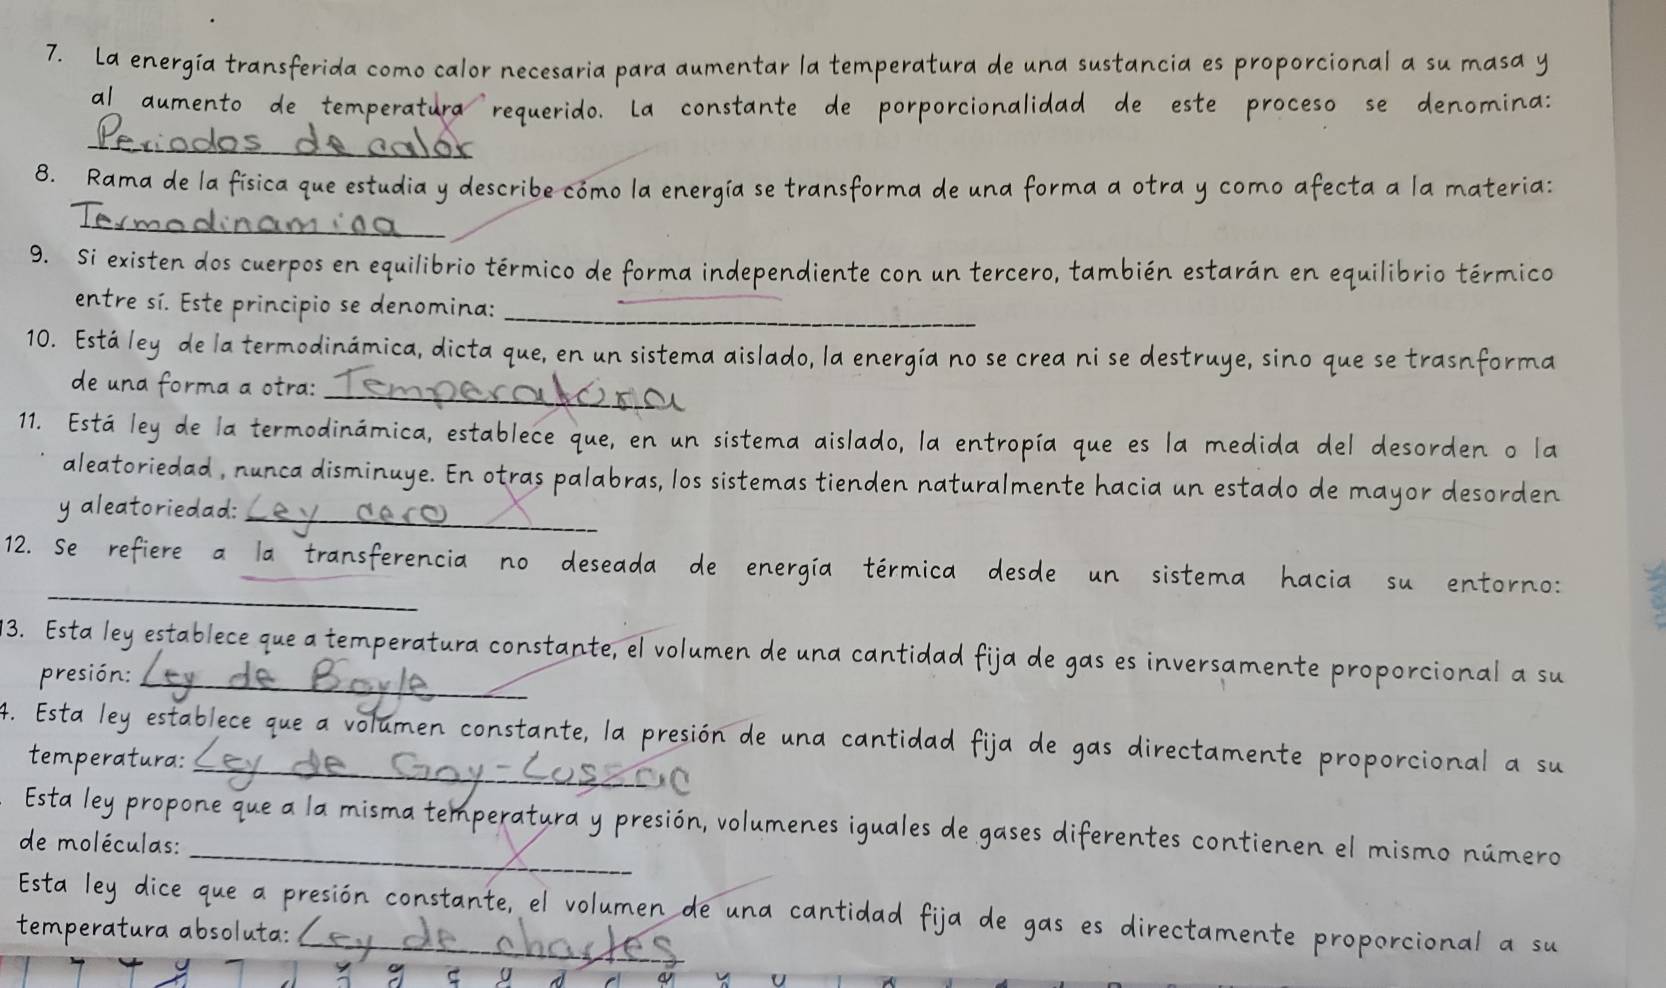 7. La energía transferida como calor necesaria para aumentar la temperatura de una sustancia es proporcional a su masa y
al aumento de temperatura requerido. La constante de porporcionalidad de este proceso se denomina:
Periodos de calor
8. Rama de la física que estudia y describe cómo la energía se transforma de una forma a otra y como afecta a la materia:
Termodinamica
9. Si existen dos cuerpos en equilibrio térmico de forma independiente con un tercero, también estarán en equilibrio térmico
entre sí. Este principio se denomina:
10. Está ley de la termodinámica, dicta que, en un sistema aislado, la energía no se crea ni se destruye, sino que se trasnforma
de una forma a otra: Temperatura
11. Está ley de la termodinámica, establece que, en un sistema aislado, la entropía que es la medida del desorden o la
aleatoriedad, nunca disminuye. En otras palabras, los sistemas tienden naturalmente hacia un estado de mayor desorden
y aleatoriedad: Ley cero
12. Se refiere a la transferencia no deseada de energía térmica desde un sistema hacia su entorno:
13. Esta ley establece que a temperatura constante, el volumen de una cantidad fija de gas es inversamente proporcional a su
presión: Ley de Boyle
4. Esta ley establece que a volumen constante, la presión de una cantidad fija de gas directamente proporcional a su
temperatura: Ley de Gay-Lussac
Esta ley propone que a la misma temperatura y presión, volumenes iguales de gases diferentes contienen el mismo número
de moléculas:
Esta ley dice que a presión constante, el volumen de una cantidad fija de gas es directamente proporcional a su
temperatura absoluta: Ley de charles